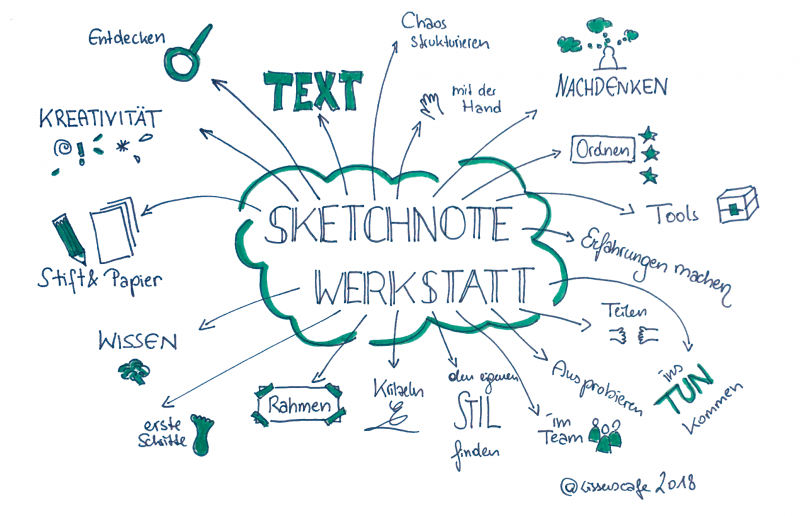 Entdecken
TEXT
Chaos
strukturieren
mit der
Hand
NACHDENKEN
KREATIVITÄT
Ordnen
Tools
Stift & Papier
SKETCHNOTE
WERKSTATT
Erfahrungen machen
Teilen
WISSEN
erste
Schritte
Rahmen
Kritzeln
den eigenen
STIL
finden
Ausprobieren
im
Team
ins
TUN
kommen
@wissenscafe 2018